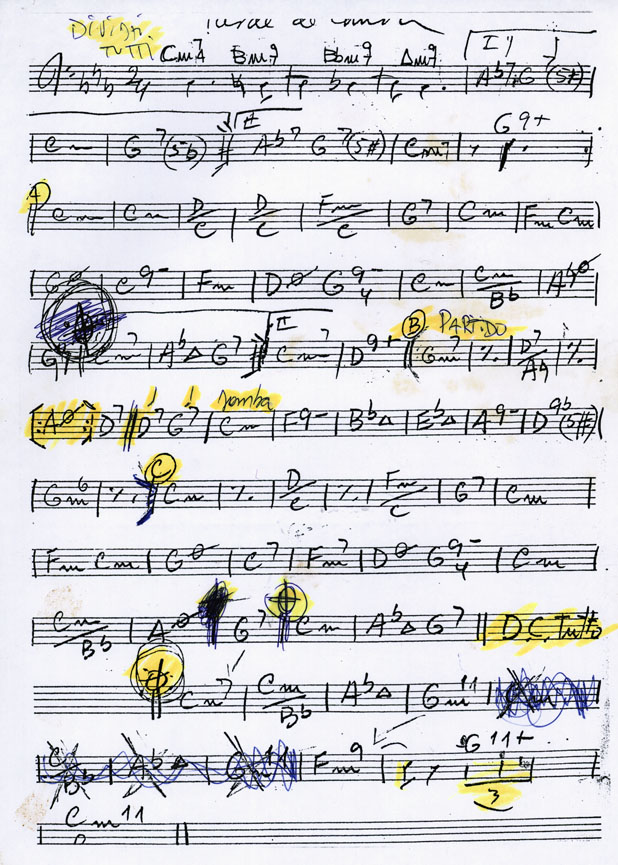 TUTTI Cm7 Bm9 Bbm9 Am9 I
Ab7 G7(5#)
Cm | G7(5b) II Ab7 G7(5#) | Cm7 G9+
A Cm | Cm | D/C | D/C | Fm/C | G7 | Cm | Fm Cm
GØ | C9- | Fm | DØ G9-4 | Cm | Cm/Bb | AbØ
G7 Cm7 | Ab△ G7 II Cm7 | D9+ B PARTIDO Gm7 | % | D7/A | %
AØ D7 D7 G7 | Cm | F9- | Bb△ | Eb△ | A9- | D9b(5#)
Gm6 | % C Cm | % | D/C | % | Fm/C | G7 | Cm
Fm Cm | GØ | C7 | Fm7 | DØ G9-4 | Cm
Cm/Bb | AØ G7 Cm | Ab△ G7 D.C. Tutto
Cm7 | Cm/Bb | Ab△ | Gm11
Bb | Ab△ | Gm11 | Fm9 G11+ 3
Cm11